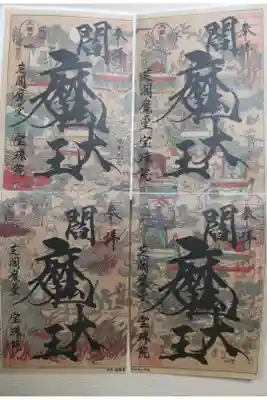 奉拝
閻
魔大王
芝閻魔堂
宝珠院
奉拝
閻
魔大王
芝閻魔堂
宝珠院
奉拝
閻
魔大王
芝閻魔堂
宝珠院
奉拝
閻
魔大王
芝閻魔堂
宝珠院